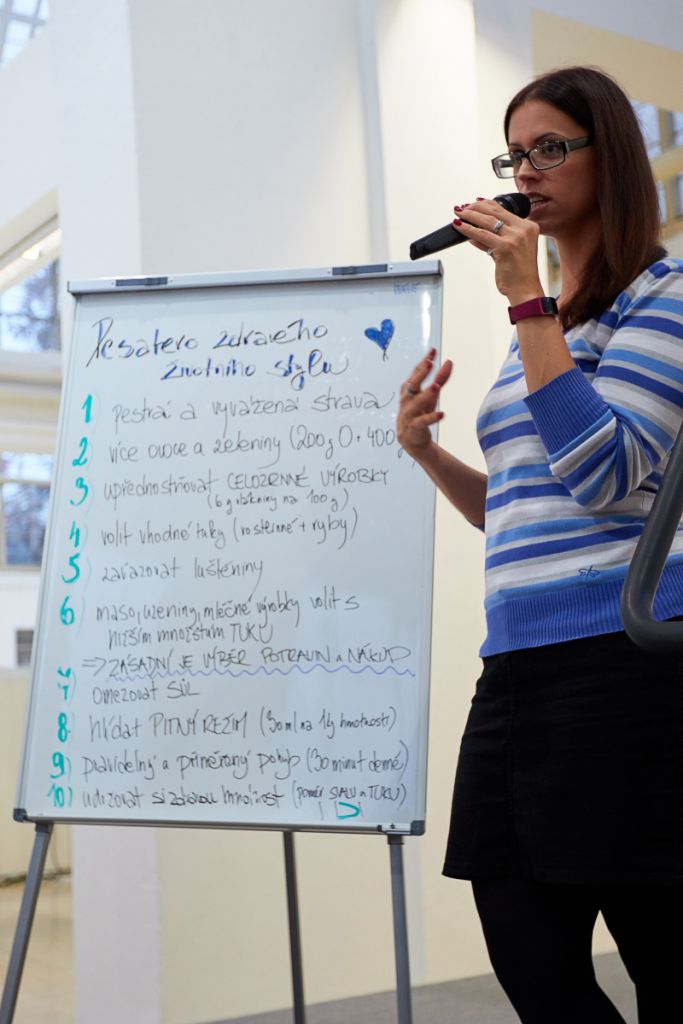 Desatero zdravého
životního stylu
1) pestrá a vyvážená strava
2) více ovoce a zeleniny (200g O + 400g
3) upřednostňovat CELOZRNNÉ VÝROBKY
(6 g vlákniny na 100g)
4) volit vhodné tuky (rostlinné + ryby)
5) zařazovat luštěniny
6) maso, uzeniny, mléčné výrobky volit s
nižším množstvím TUKU
=> ZÁSADNÍ JE VÝBĚR POTRAVIN a NÁKUP
7) omezovat SŮL
8) hlídat PITNÝ REŽIM (30ml na 1kg hmotnosti)
9) pravidelný a přiměřený pohyb (30 minut denně)
10) udržovat si zdravou hmotnost (poměr SVALU a TUKU)